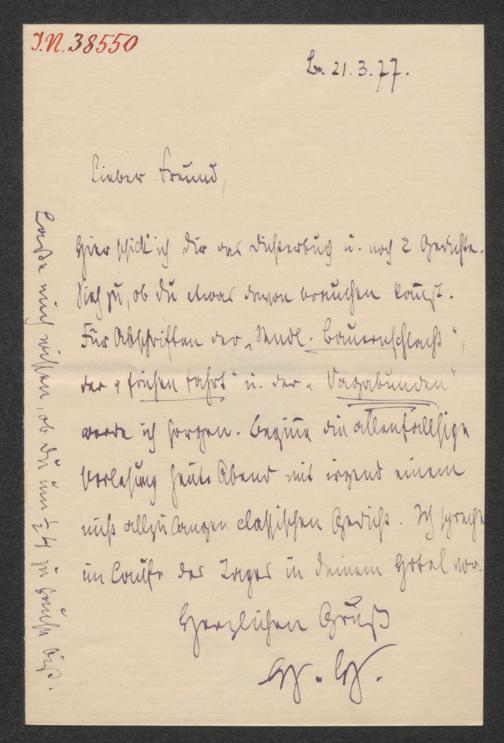 I.N. 38550
21.3.77.
Lieber Freund,
Hier schick' ich Dir das Dichterbuch u. noch 2 Gedichte.
Sieh zu, ob Du etwas davon brauchen kannst.
Für Abschriften der „Sendl. Bauernschlacht“,
der „frühen Fahrt“ u. der „Vagabunden“
werde ich sorgen. Beginne die allenfallsige
Vorlesung heute Abend mit irgend einem
nicht allzulangen classischen Gedicht. Ich spreche
im Laufe des Tages in Deinem Hotel vor.
Herzlichen Gruß
H. H.
Lasse mich wissen, ob Du um ½4 zu Hause bist.